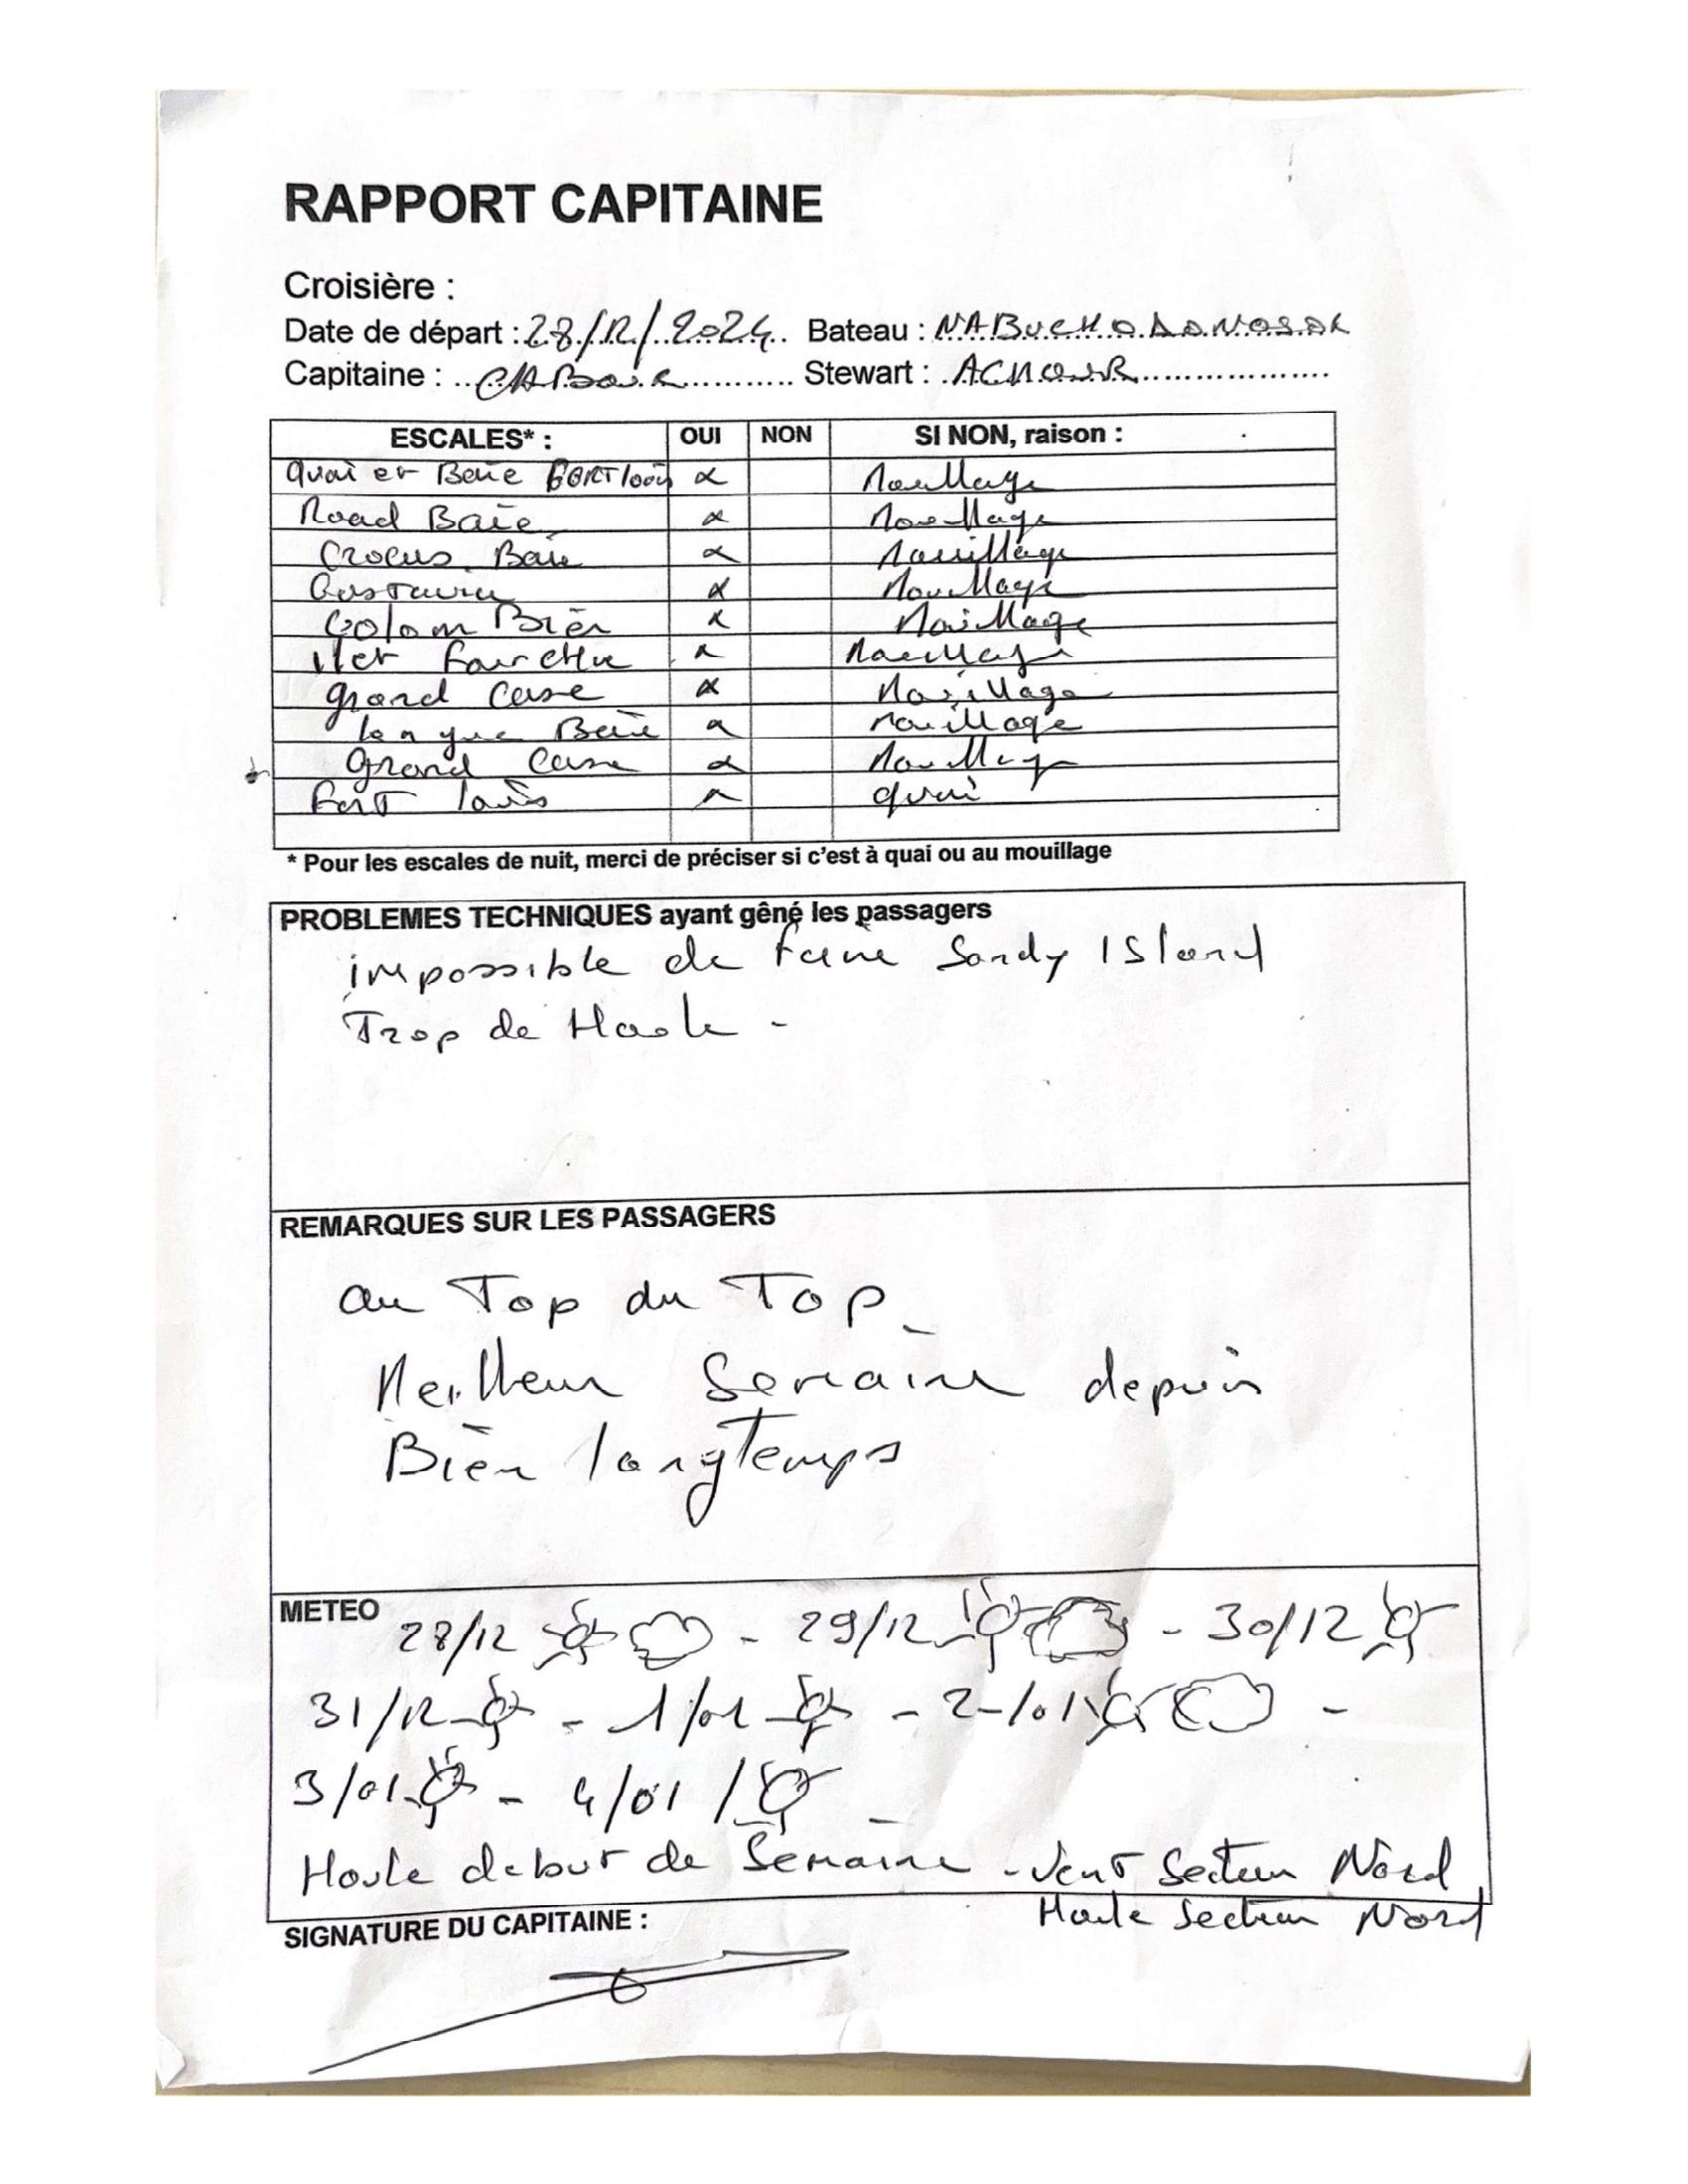 RAPPORT CAPITAINE
Croisière :
Date de départ : 28/12/2024 Bateau : NABUCHODONOSOR
Capitaine : Stewart : ACHOUR
ESCALES* : OUI NON SI NON, raison :
Quai et Baie FORT louis x Mouillage
Road Baie x Mouillage
Crocus Baie x Mouillage
Gustavia x Mouillage
Colom Bièr x Mouillage
ilet Fourchue x Mouillage
grand Case x Mouillage
longue Baie x mouillage
Grand Case x Mouillage
Fort louis x quai
* Pour les escales de nuit, merci de préciser si c'est à quai ou au mouillage
PROBLEMES TECHNIQUES ayant gêné les passagers
impossible de faire Sandy ISland
Trop de Houle -
REMARQUES SUR LES PASSAGERS
au Top du Top_
Meilleur Semaine depuis
Bien longtemps
METEO 28/12 - 29/12 - 30/12
31/12 - 1/01 - 2/01 -
3/01 - 4/01 / _
Houle debut de Semaine - Vent Secteur Nord
Houle Secteur Nord
SIGNATURE DU CAPITAINE :